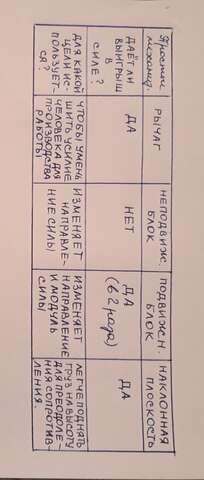 Простые
механизм.
РЫЧАГ
НЕПОДВИЖ.
БЛОК
ПОДВИЖН.
БЛОК
НАКЛОННАЯ
ПЛОСКОСТЬ
ДАЁТ ЛИ
ВЫИГРЫШ
В
СИЛЕ?
ДА
НЕТ
ДА
(в 2 раза)
ДА
ДЛЯ КАКОЙ
ЦЕЛИ ИС-
ПОЛЬЗУЕТ-
СЯ?
ЧТОБЫ УМЕНЬ
ШИТЬ УСИЛИЕ
ЧЕЛОВЕКА ДЛЯ
ПРОИЗВОДСТВА
РАБОТЫ
ИЗМЕНЯЕТ
НАПРАВЛЕ-
НИЕ СИЛЫ
ИЗМЕНЯЕТ
НАПРАВЛЕНИЕ
И МОДУЛЬ
СИЛЫ
ЛЕГЧЕ ПОДНЯТЬ
ГРУЗ НА ВЫСОТУ
ДЛЯ ПРЕОДОЛЕ-
НИЯ СОПРОТИВ-
ЛЕНИЯ.